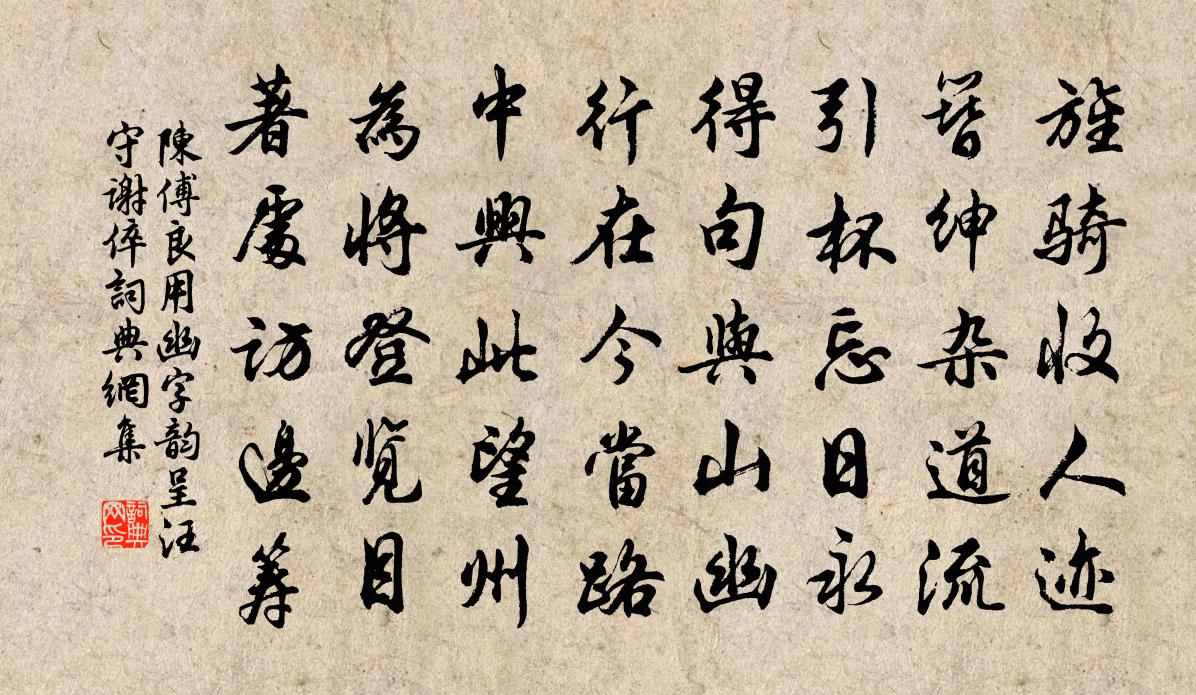 旌骑收人迹
簪绅杂道流
引杯忘日永
得句與山幽
行在今當路
中興此望州
為将登览目
著處访邊筹
陳傅良用幽字韵呈汪
守谢倅詞典網集
詞典
网印